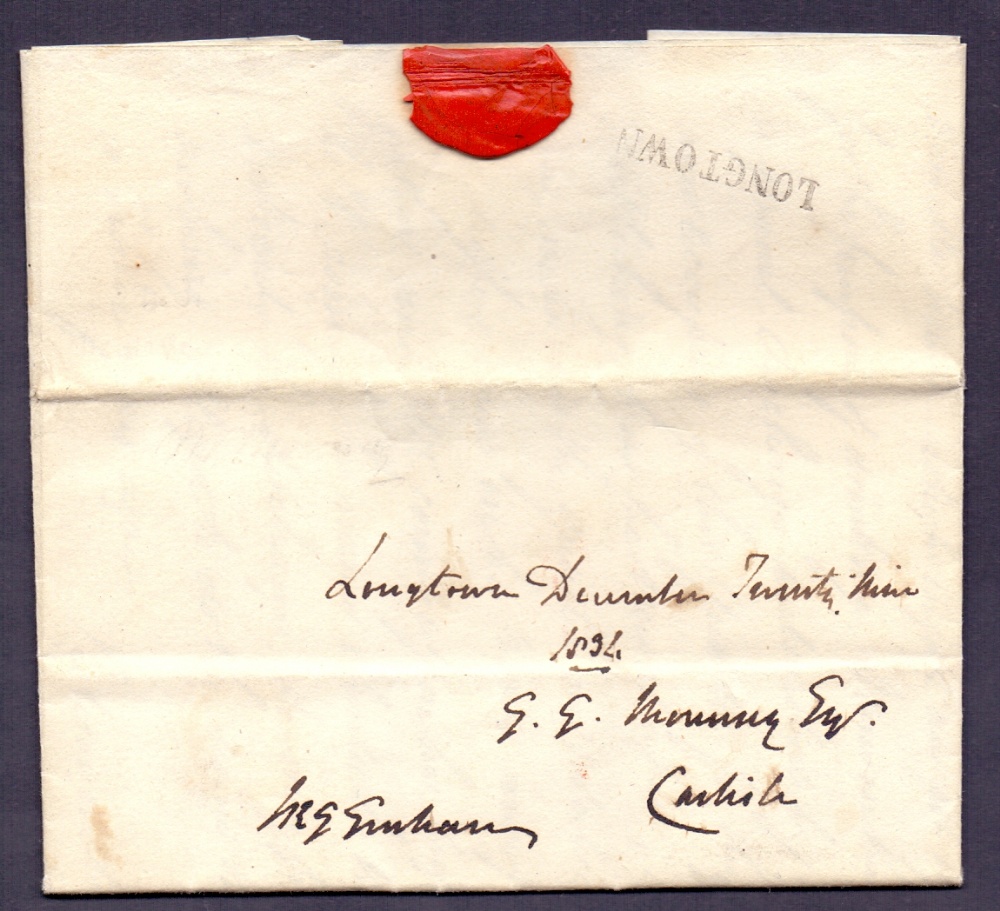 LONGTOWN
Longtown December Twenty Nine
1834
G. G. Mounsey Esqr.
Carlisle